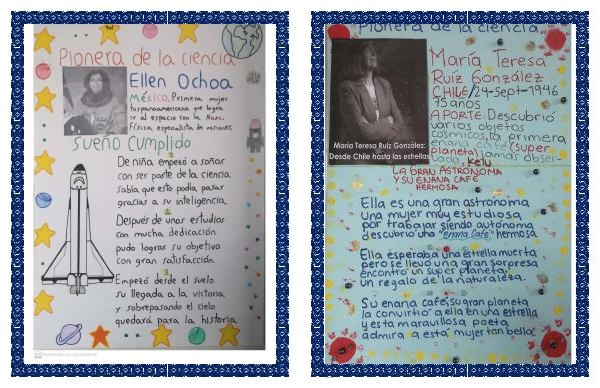 Pionera de la ciencia
Ellen Ochoa
México, Primera mujer
hispanoamericana que logra
ir al espacio con la Nasa.
Física especialista de misiones.
SUEÑO CUMPLIDO
1
De niña empezó a soñar
con ser parte de la ciencia
sabía que esto podía pasar
gracias a su inteligencia.
2
Después de unos estudios
con mucha dedicación
pudo lograr su objetivo
con gran satisfacción.
3
Empezó desde el suelo
su llegada a la victoria
y sobrepasando el cielo
quedará para la historia.
Escaneado con CamScanner
Pionera de la ciencia
María Teresa
Ruiz González
CHILE/24-sept-1946
75 años
APORTE: Descubrió
varios objetos
cósmicos, la primera
enana café (super
planeta) jamás obser-
vada, KELU
María Teresa Ruiz González:
Desde Chile hasta las estrellas
LA GRAN ASTRÓNOMA
Y SU ENANA CAFÉ
HERMOSA
Ella es una gran astrónoma
una mujer muy estudiosa
por trabajar siendo autónoma
descubrió una "enana Café" hermosa
Ella esperaba una estrella muerta
pero se llevó una gran sorpresa
encontró un super planeta,
un regalo de la naturaleza.
Su enana café, su gran planeta
la convirtió a ella en una estrella
y esta maravillosa poeta
admira a esta mujer tan bella.